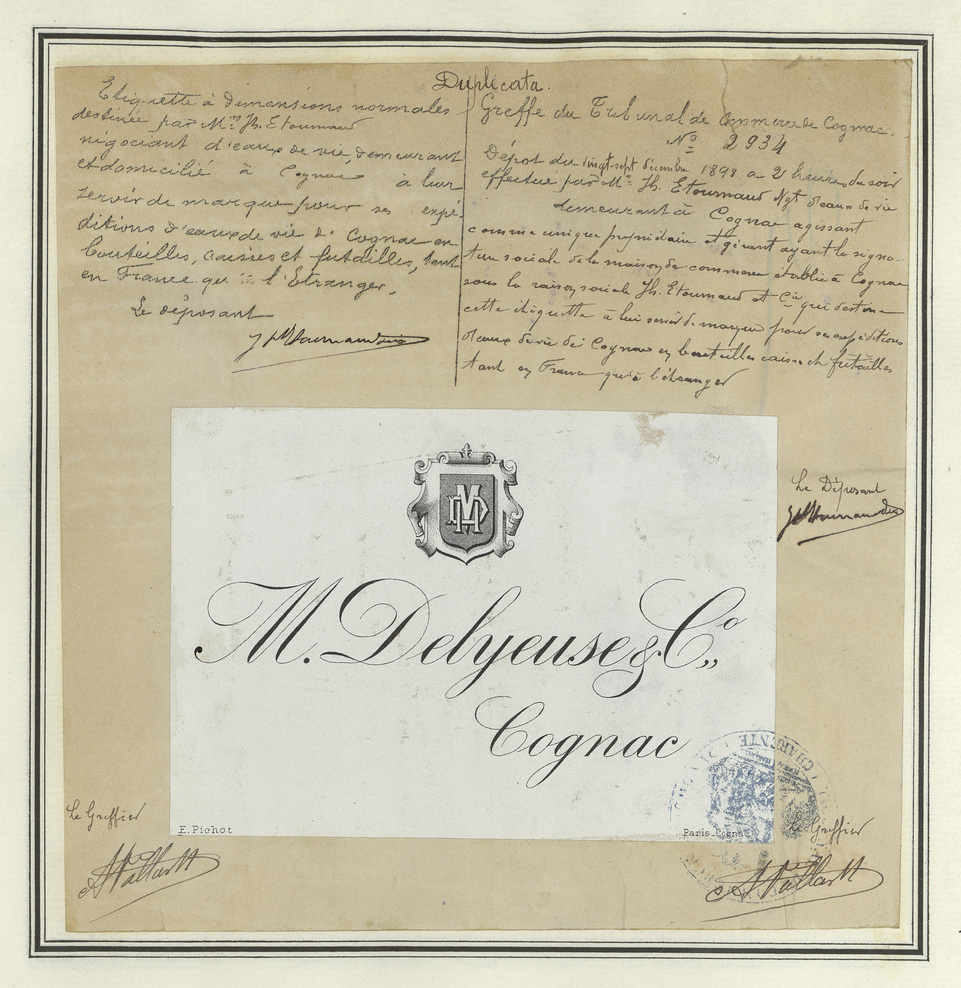 Duplicata.
Etiquette à dimensions normales
destinée par Mr Jh. Etournaud
négociant d'eaux de vie, demeurant
et domicilié à Cognac à leur
servir de marque pour ses expé-
ditions d'eaux de vie de Cognac en
bouteilles, caisses et futailles, tant
en France qu'à l'Etranger.
Le déposant
Greffe du Tribunal de Commerce de Cognac.
No 2934
Dépôt du vingt-sept décembre 1898 à 2 heures du soir
effectué par Mr Jh. Etournaud Ngt d'eaux de vie
demeurant à Cognac agissant
comme unique propriétaire et gérant ayant la signa-
ture sociale de la maison de commerce établie à Cognac
sous la raison sociale Jh. Etournaud et Cie qui destine
cette étiquette à lui servir de marque pour ses expéditions
d'eaux de vie de Cognac en bouteilles caisses et futailles
tant en France qu'à l'étranger
Le Déposant
MD
M. Delyeuse & Co.,
Cognac
E. Pichot
Paris-Cognac
CHARENTE
Le Greffier
Le Greffier